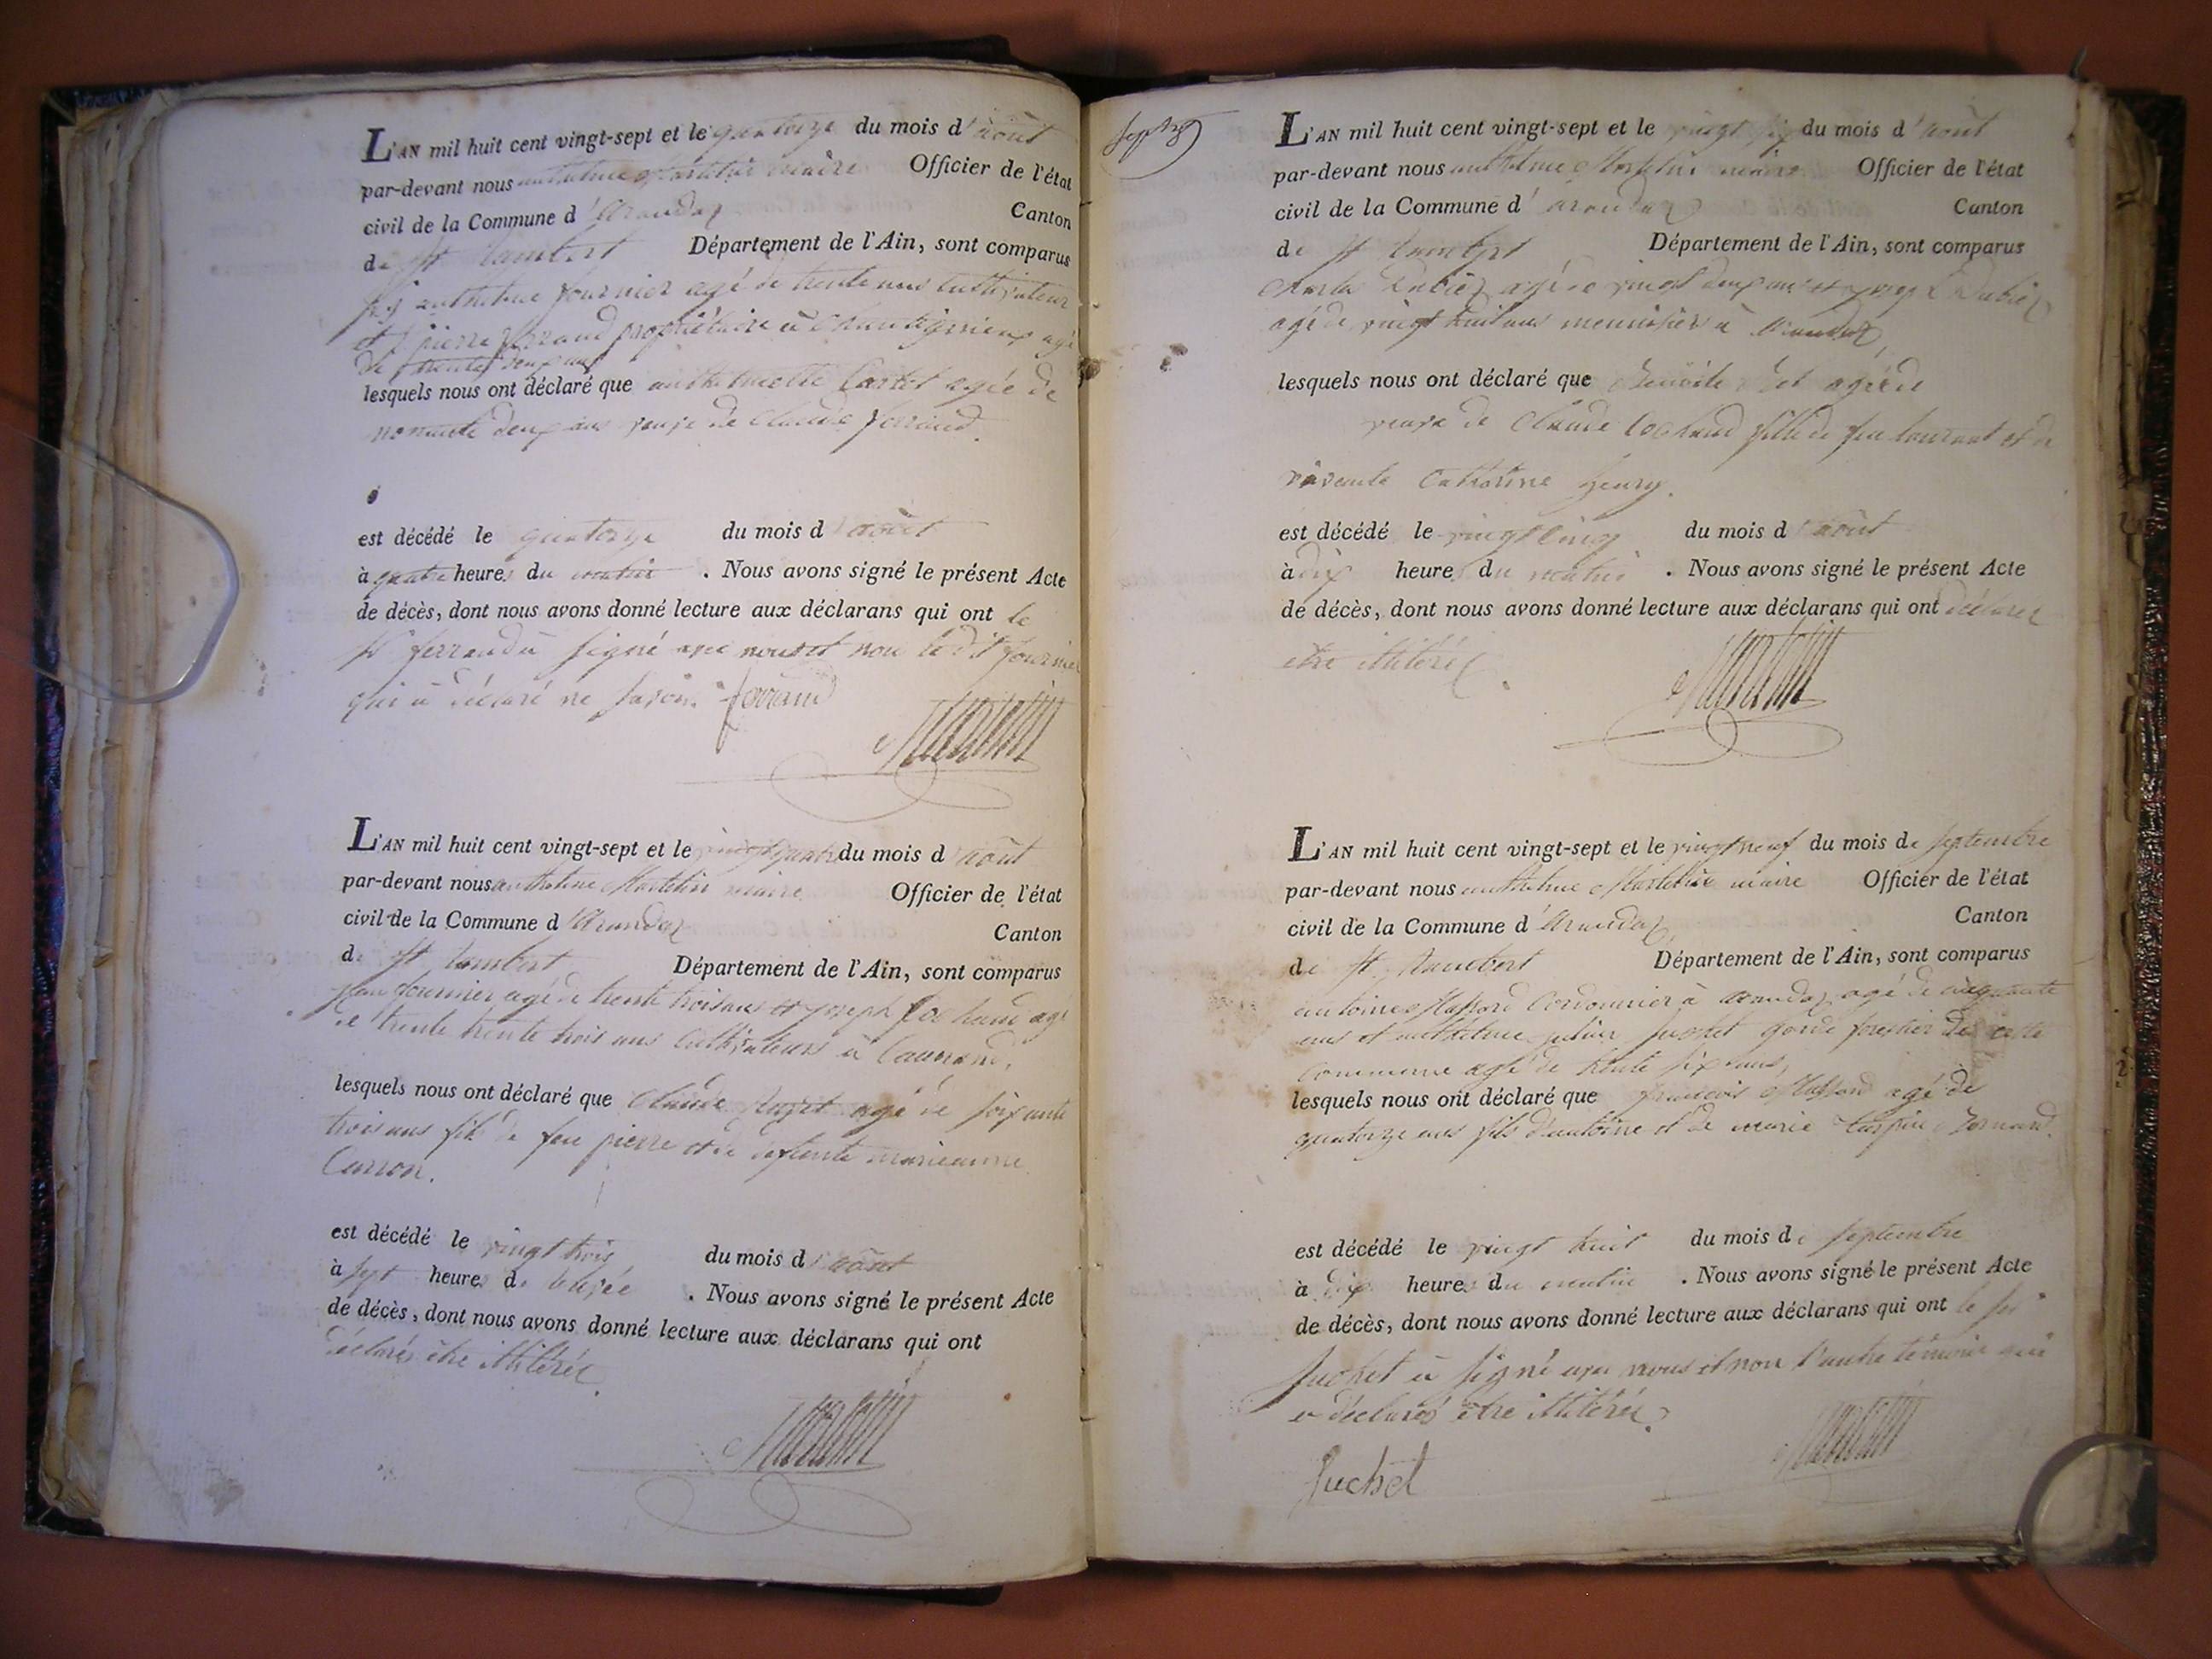 L'AN mil huit cent vingt-sept et le quatorze du mois d'août
par-devant nous anthelme Martelin maire Officier de l'état
civil de la Commune d'Arandaz Canton
de St Rambert Département de l'Ain, sont comparus
anthelme fournier agé de trente ans cultivateur
et pierre ferrand propriétaire à agé
de trente deux ans
lesquels nous ont déclaré que anthelmette Carrel agée de
nonante deux ans veuve de Claude ferrand.
est décédé le quatorze du mois d'août
à quatre heures du matin . Nous avons signé le présent Acte
de décès, dont nous avons donné lecture aux déclarans qui ont le
sr ferrand à signé avec nous et non le dit fournier
qui à déclaré ne savoir. ferrand
Martelin
L'AN mil huit cent vingt-sept et le vingt quatre du mois d'août
par-devant nous anthelme Martelin maire Officier de l'état
civil de la Commune d'Arandaz Canton
de St Rambert Département de l'Ain, sont comparus
jean fournier agé de trente trois ans et joseph Cochand agé
de trente trente trois ans Cultivateurs à
lesquels nous ont déclaré que Claude agé de soixante
trois ans fils de feu pierre et de deffunte marieanne
Carron.
est décédé le vingt trois du mois d'août
à sept heures de . Nous avons signé le présent Acte
de décès, dont nous avons donné lecture aux déclarans qui ont
déclarés être illitérés.
Martelin
septbre
L'AN mil huit cent vingt-sept et le vingt six du mois d'août
par-devant nous anthelme Martelin maire Officier de l'état
civil de la Commune d'arandaz Canton
de St Rambert Département de l'Ain, sont comparus
Charles Dubiez agé de vingt deux ans et joseph Dubiez
agé de vingt huit ans menuisiers à Arandaz
lesquels nous ont déclaré que agée de
veuve de Claude Cochand fille de feu laurent et de
vivante Catherine
est décédé le vingt cinq du mois d'août
à dix heures du matin . Nous avons signé le présent Acte
de décès, dont nous avons donné lecture aux déclarans qui ont déclarés
être illitérés.
Martelin
L'AN mil huit cent vingt-sept et le vingt neuf du mois de septembre
par-devant nous anthelme Martelin maire Officier de l'état
civil de la Commune d'Arandaz Canton
de St Rambert Département de l'Ain, sont comparus
antoine Massard Cordonnier à arandaz agé de cinquante
ans et anthelme juchet garde forestier de cette
Commune agé de trente six ans,
lesquels nous ont déclaré que françois Massard agé de
quatorze ans fils d'antoine et de marie
est décédé le vingt huit du mois de septembre
à dix heures du matin . Nous avons signé le présent Acte
de décès, dont nous avons donné lecture aux déclarans qui ont le sr
juchet à signé avec nous et non l'autre témoin qui
a déclarés être illitérés.
Juchet
Martelin